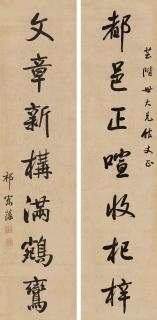 芸階世大兄仁丈正
都邑正喧收杞梓
文章新構滿鵷鸞
祁寯藻